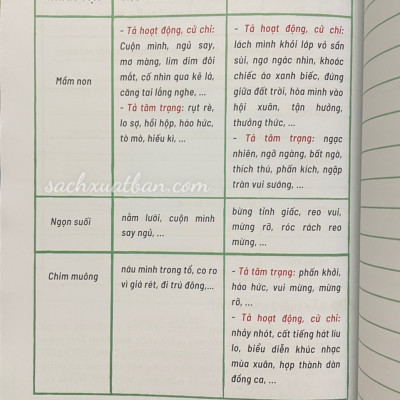 - Tả hoạt động, cử chỉ:
Cuộn mình, ngủ say,
mơ màng, lim dim đôi
mắt, cố nhìn qua kẽ lá,
căng tai lắng nghe, ...
- Tả tâm trạng: rụt rè,
lo sợ, hồi hộp, háo hức,
tò mò, hiếu kì, ...
- Tả hoạt động, cử chỉ:
lách mình khỏi lớp vỏ sần
sùi, ngơ ngác nhìn, khoác
chiếc áo xanh biếc, đứng
giữa đất trời, hòa mình vào
hội xuân, tận hưởng,
thưởng thức, ...
- Tả tâm trạng: ngạc
nhiên, ngỡ ngàng, bất ngờ,
thích thú, phấn kích, ngập
tràn vui sướng, ...
Mầm non
sachxuatban.com
Ngọn suối
nằm lười, cuộn mình
say ngủ, ...
bừng tỉnh giấc, reo vui,
mừng rỡ, róc rách reo
mừng, ...
Chim muông
náu mình trong tổ, co ro
vì giá rét, đi trú đông,...
- Tả tâm trạng: phấn khởi,
háo hức, vui mừng, mừng
rỡ, ...
- Tả hoạt động, cử chỉ:
nhảy nhót, cất tiếng hát líu
lo, biểu diễn khúc nhạc
mùa xuân, hợp thành dàn
đồng ca, ...